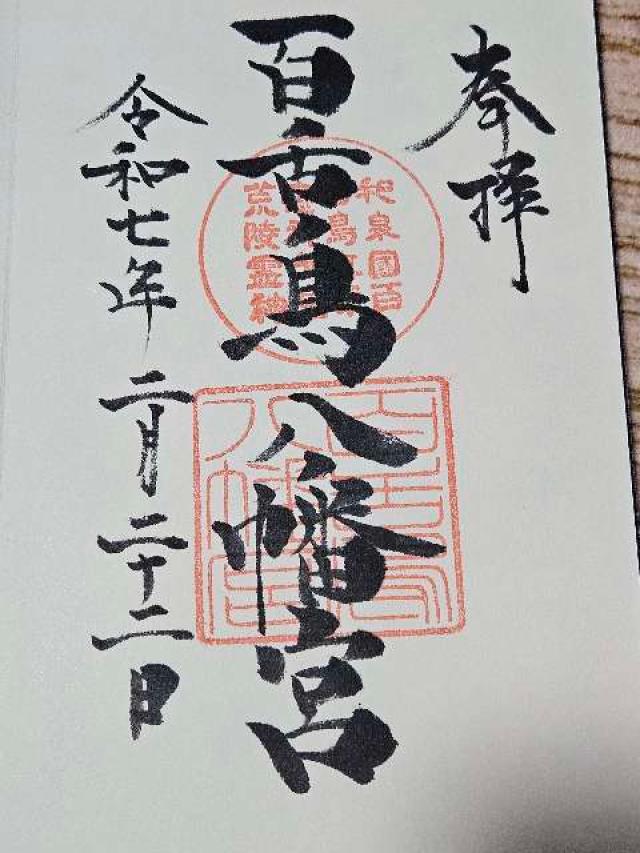 奉拝
百舌鳥八幡宮
令和七年二月二十二日
和泉国百
荒陵霊神